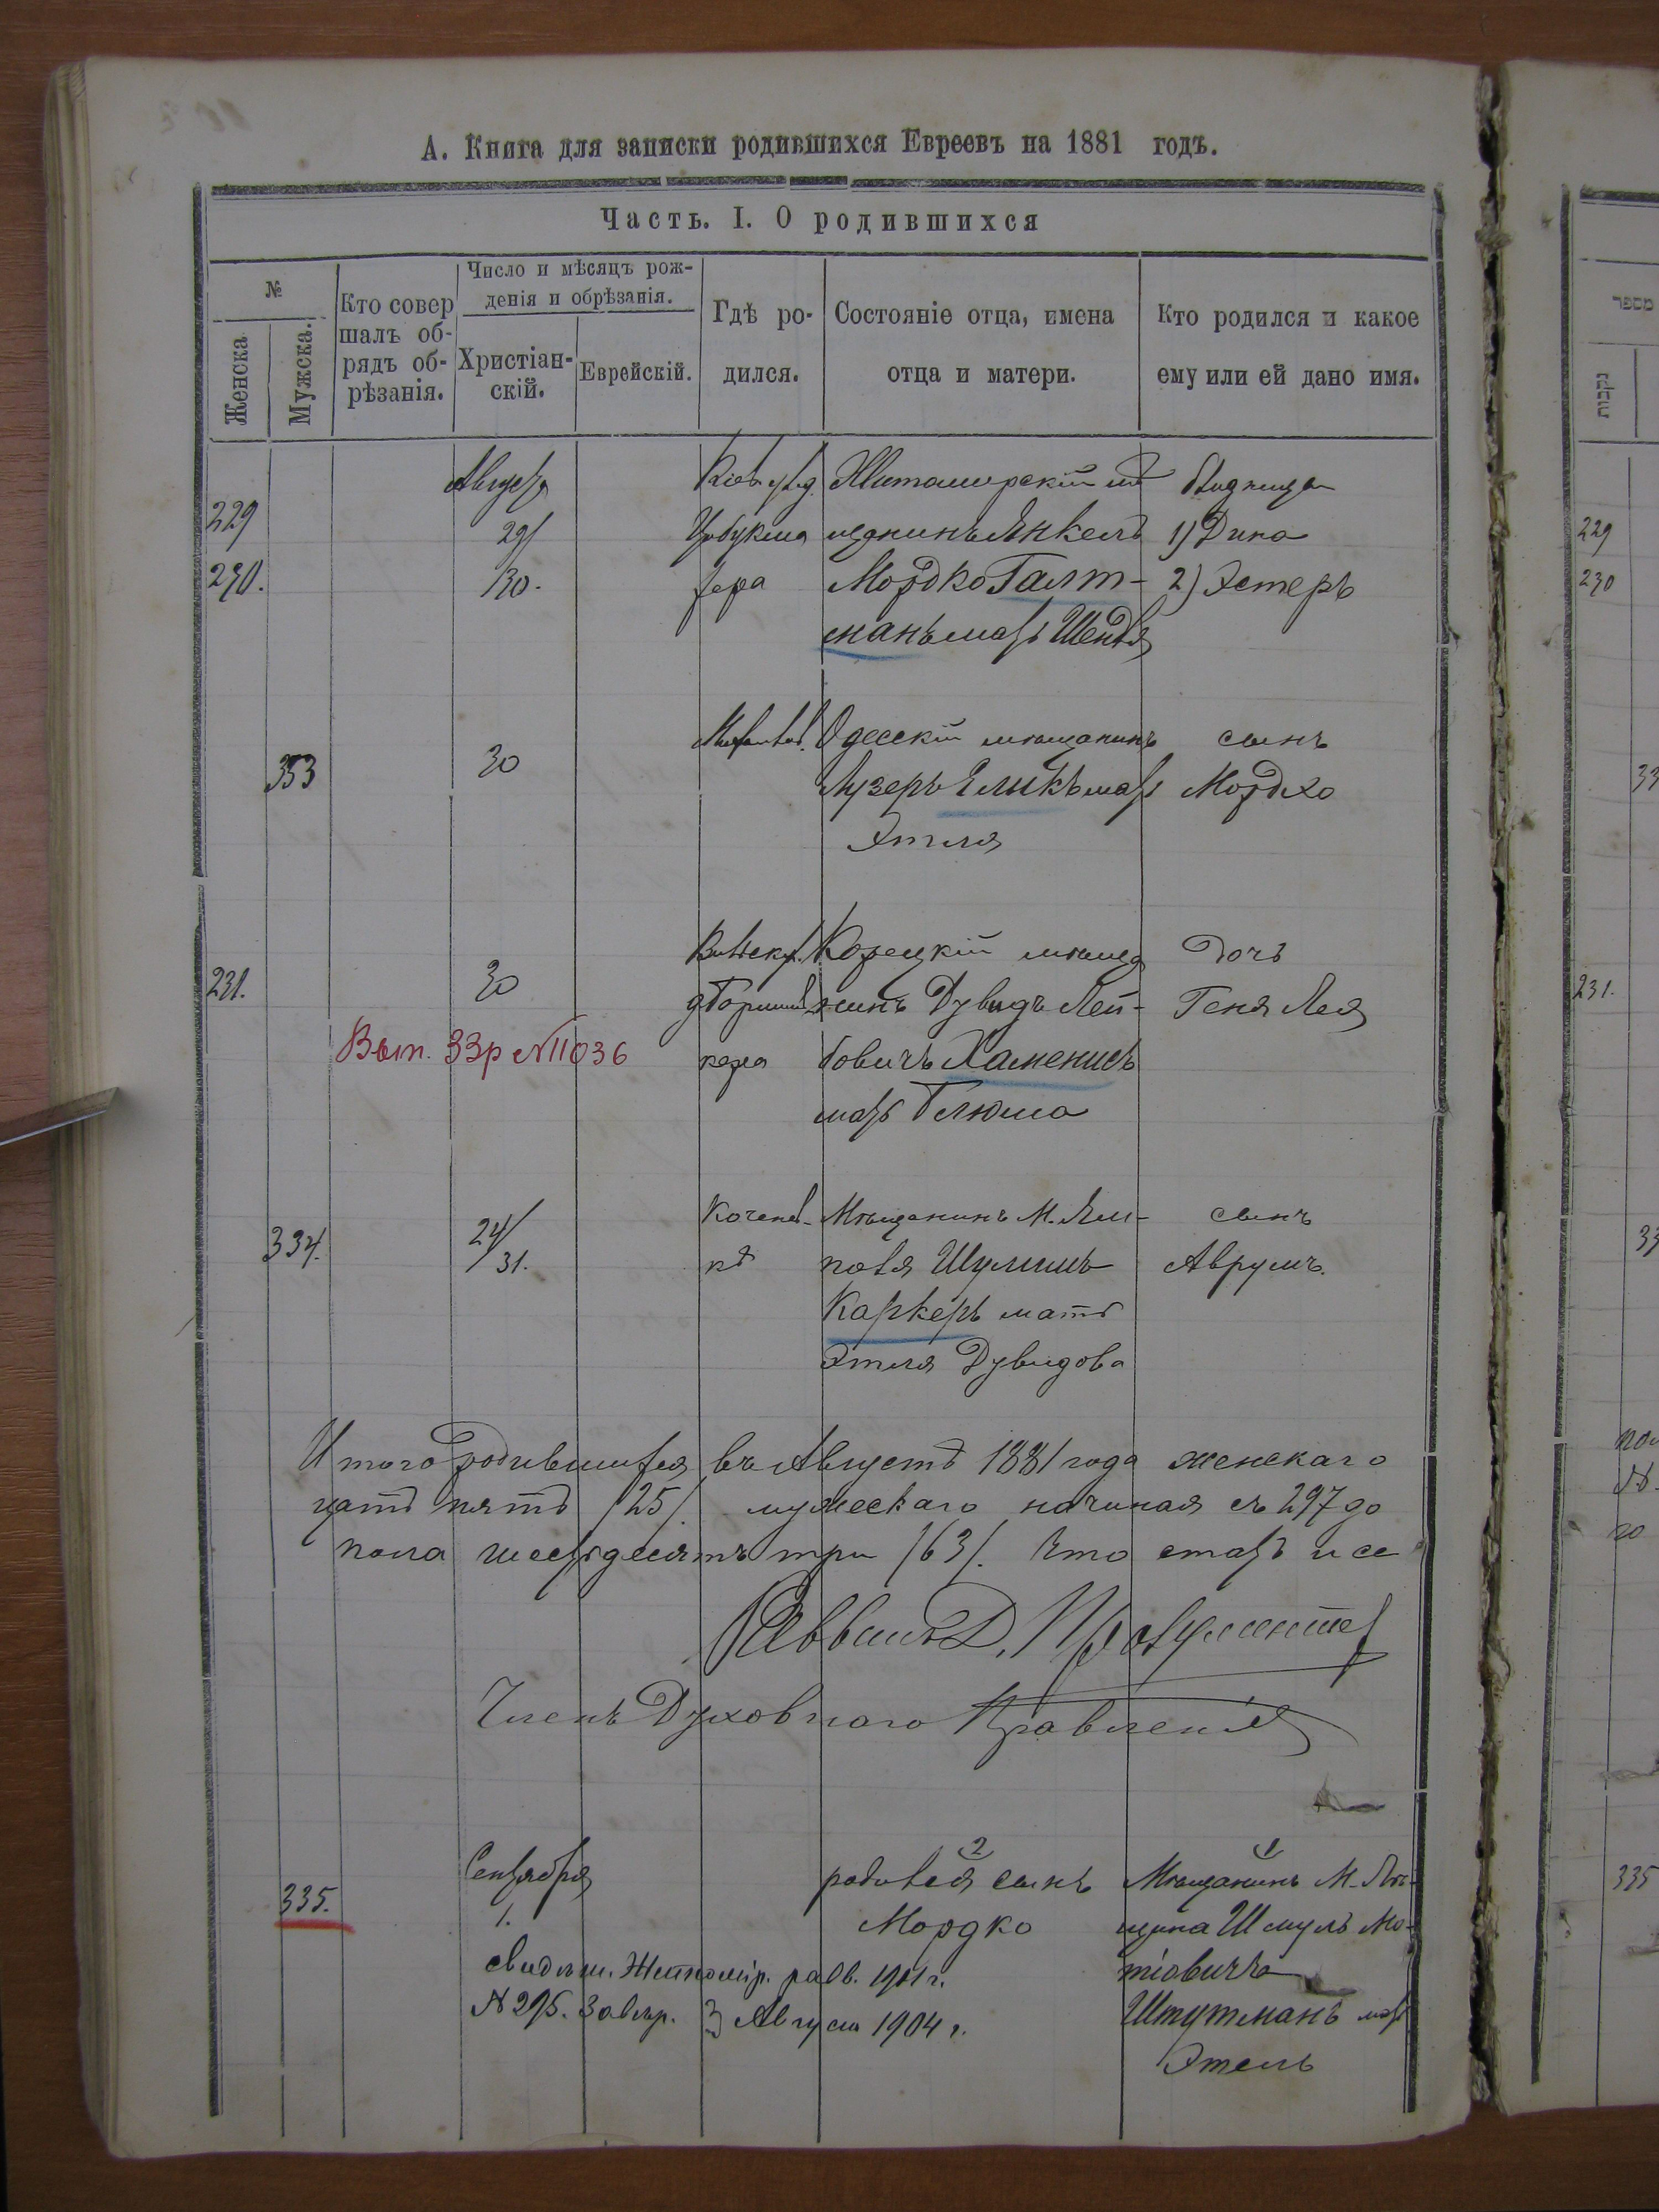 А. Книга для записки родившихся Евреевъ на 1881 годъ.
Часть. I. О родившихся
№
Женска
Мужска.
Кто совер
шалъ об-
рядъ об-
рѣзанія.
Число и мѣсяцъ рож-
денія и обрѣзанія.
Христіан-
скій.
Еврейскій.
Гдѣ ро-
дился.
Состояніе отца, имена
отца и матери.
Кто родился и какое
ему или ей дано имя.
229
230.
Августа
29/
/30.
Житомирскій мѣ
щанинъ Янкель
Мордко Галт-
манъ мать Шендля
близнецы
1) Дина
2) Эстеръ
333
30
Одесскій мѣщанинъ
Лузеръ мать
Этля
сынъ
Мордко
231.
30
Корецкій мѣща
нинъ Дувидъ Лей-
бовичъ
мать Блюма
дочь
Геня Лея
Вып. 33р №11036
334.
24/
/31.
Мѣщанинъ М. Ям-
поля Шулимъ
Каркеръ мать
Этля Дувидова
сынъ
Аврумъ.
Итого родившихся въ Августѣ 1881 года женскаго
цать пять /25/. мужескаго начиная съ 297 до
пола шестьдесятъ три /63/. Что
Раввинъ Д.
Членъ Духовнаго Правленія
335.
Сентября
1.
2
родился сынъ
Мордко
1
Мѣщанинъ М.
Шмуль Мо-
тіовичъ
Штутманъ мать
Этель
свидѣт. Житомір. равв. 1901 г.
3 Августа 1904 г.
מספר
נקבות
229
230
33
231.
33
335